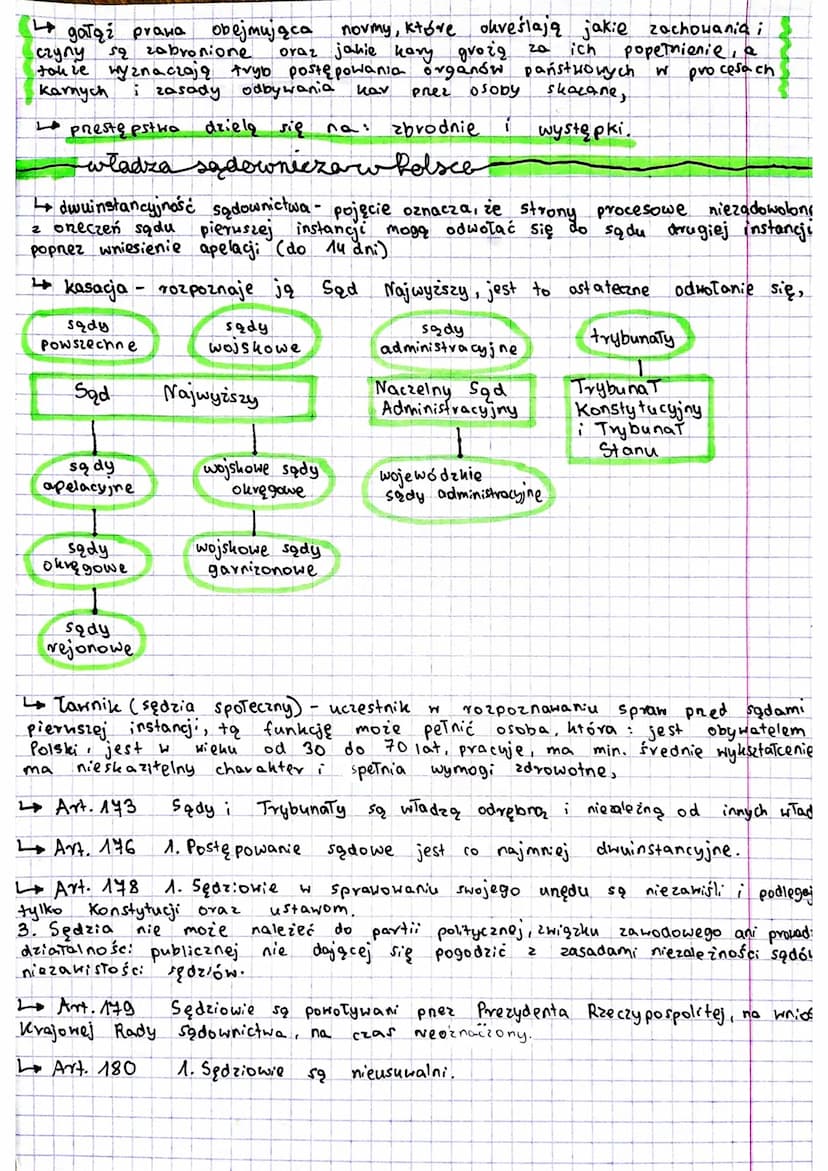 ↳ gałąź prawa obejmująca normy, które określają jakie zachowania i
czyny są zabronione oraz jakie kary grożą za ich popełnienie, a
także wyznaczają tryb postępowania organów państwowych w procesach
karnych i zasady odbywania kar przez osoby skazane,
↳ przestępstwa dzielą się na: zbrodnie i występki.
władza sądownicza w Polsce
↳ dwuinstancyjność sądownictwa - pojęcie oznacza, że strony procesowe niezadowolone
z orzeczeń sądu pierwszej instancji mogą odwołać się do sądu drugiej instancji
poprzez wniesienie apelacji (do 14 dni)
↳ kasacja - rozpoznaje ją Sąd Najwyższy, jest to ostateczne odwołanie się,
sądy powszechne
sądy wojskowe
sądy administracyjne
trybunały
Sąd Najwyższy
Naczelny Sąd Administracyjny
Trybunał Konstytucyjny i Trybunał Stanu
sądy apelacyjne
wojskowe sądy okręgowe
wojewódzkie sądy administracyjne
sądy okręgowe
wojskowe sądy garnizonowe
sądy rejonowe
↳ Ławnik (sędzia społeczny) - uczestnik w rozpoznawaniu spraw przed sądami
pierwszej instancji, tą funkcję może pełnić osoba, która: jest obywatelem
Polski, jest w wieku od 30 do 70 lat, pracuje, ma min. średnie wykształcenie
ma nieskazitelny charakter i spełnia wymogi zdrowotne,
↳ Art. 173 Sądy i Trybunały są władzą odrębną i niezależną od innych wład
↳ Art. 176 1. Postępowanie sądowe jest co najmniej dwuinstancyjne.
↳ Art. 178 1. Sędziowie w sprawowaniu swojego urzędu są niezawiśli i podlegaj
tylko Konstytucji oraz ustawom.
3. Sędzia nie może należeć do partii politycznej, związku zawodowego ani prowadzi
działalności publicznej nie dającej się pogodzić z zasadami niezależności sądów
niezawisłości sędziów.
↳ Art. 179 Sędziowie są powoływani przez Prezydenta Rzeczypospolitej, na wnios
Krajowej Rady sądownictwa, na czas nieoznaczony.
↳ Art. 180 1. Sędziowie są nieusuwalni.